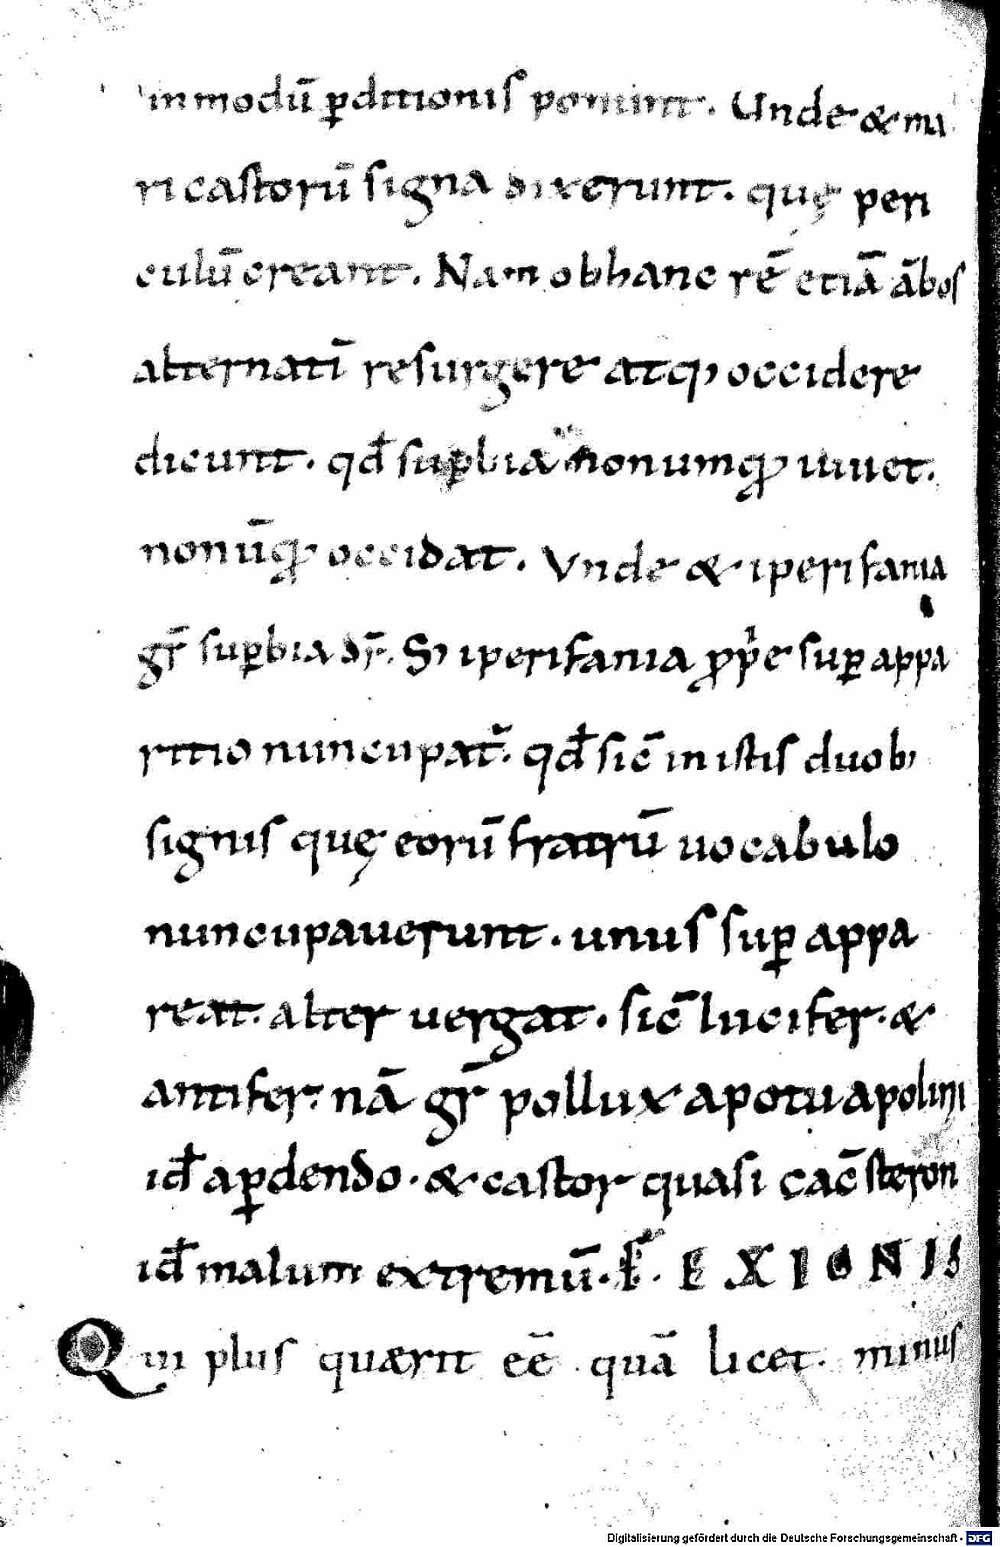 inmodū ꝑditionis ponunt. Unde & ma
ri castorū signa dixerunt. quę peri
culū creant. Nam obhanc rē etiā ābos
alternatī resurgere atq; occidere
dicunt. qđ suꝑbia nonumqꝫ uiuet.
nonūqꝫ occidat. Vnde & iperifania
gr̄ suꝑbia dr̄. S; iperifania ꝓpͥe suꝑ appa
ritio nuncupat̃. qđ sic̄ in istis duob;
signis quę eorū fratrū uocabulo
nuncupauerunt. unus suꝑ appa
reat. alter uergat. sic̄ lucifer. &
antifer. nā gr̄ pollux apotuapolini
iđ aꝑdendo. & castor quasi cac̄steron
iđ malum extremū. F̄. EXIONIS
Qui plus quærit eē quā licet. minus
Digitalisierung gefördert durch die Deutsche Forschungsgemeinschaft - DFG